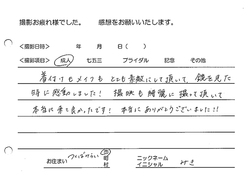 撮影お疲れ様でした。 感想をお願いいたします。
<撮影日時> 年 月 日( )
<撮影項目> 成人 七五三 ブライダル 記念 その他
着付けもメイクも とても素敵にして頂いて、鏡を見た
時に感動しました! 撮影も綺麗に撮って頂いて
本当に来て良かったです! 本当にありがとうございました!!
お住まい つくばみらい 市 町 村 ニックネーム イニシャル みさき